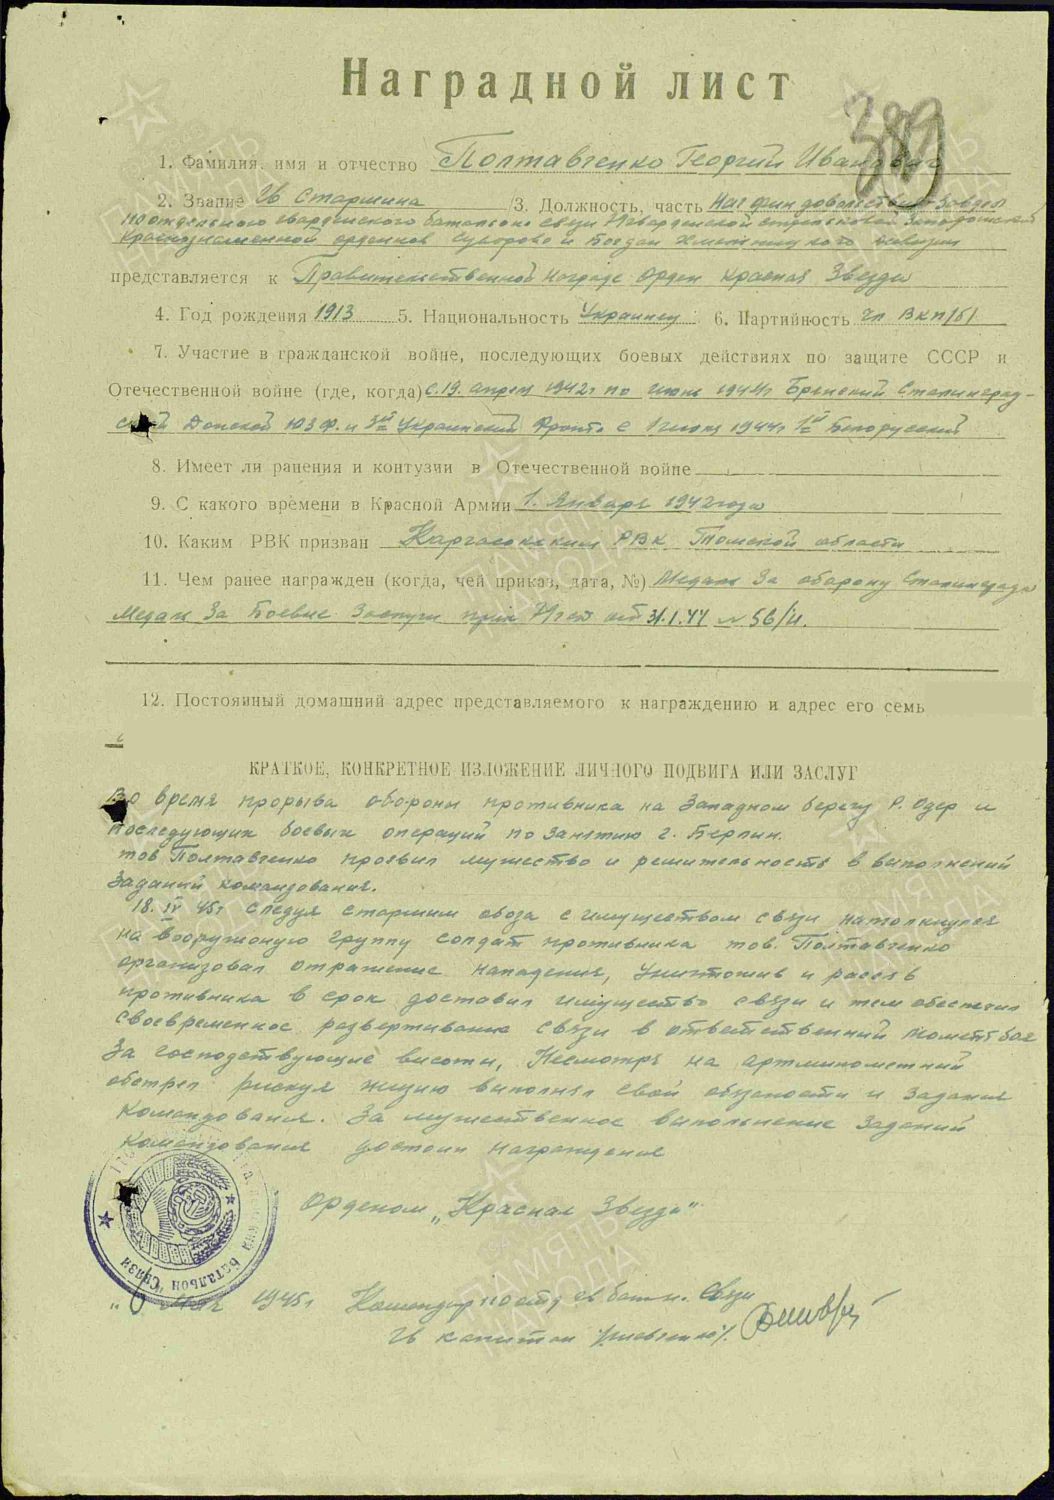 389
Наградной лист
1. Фамилия, имя и отчество Полтавченко Георгий Иванович
2. Звание Гв Старшина 3. Должность, часть Нач фин довольствия
110 отдельного гвардейского батальона связи гвардейской стрелковой Запорожской
Краснознаменной орденов Суворова и Богдан Хмельницкого дивизии
представляется к Правительственной Награде Орден Красная Звезда
4. Год рождения 1913 5. Национальность Украинец 6. Партийность чл ВКП/б/
7. Участие в гражданской войне, последующих боевых действиях по защите СССР и
Отечественной войне (где, когда) с 19. апреля 1942г по июнь 1944г Брянский Сталинград-
ский Донской Ю.З.Ф. и 3й Украинский Фронт с 1 июня 1944г 1й Белорусский
8. Имеет ли ранения и контузии в Отечественной войне
9. С какого времени в Красной Армии 1. Января 1942 года
10. Каким РВК призван Каргасокским РВК Томской области
11. Чем ранее награжден (когда, чей приказ, дата, №) Медаль За оборону Сталинграда
Медаль За Боевые Заслуги от 31.1.44 № 56/н.
12. Постоянный домашний адрес представляемого к награждению и адрес его семь
КРАТКОЕ, КОНКРЕТНОЕ ИЗЛОЖЕНИЕ ЛИЧНОГО ПОДВИГА ИЛИ ЗАСЛУГ
Во время прорыва обороны противника на Западном берегу Р. Одер и
последующих боевых операций по занятию г. Берлин.
тов Полтавченко проявил мужество и решительность в выполнений
Заданий командования.
18. IV 45г следуя старшим обоза с имуществом связи натолкнулся
на вооружоную группу солдат противника тов. Полтавченко
организовал отражение нападения, Уничтожив и рассеяв
противника в срок доставил имущество связи и тем обеспечил
своевременное развертивание связи в ответственный момент боя
За господствующие висоти, Несмотря на артминометний
обстрел рискуя жизню выполнял свои обязаности и задания
командования. За мужественное выполнение Заданий
командования достоин награждения
Орденом „Красная Звезда"
Батальон Связи
мая 1945г Командир 110 отд гв бат-н. Связи
Гв капитан
ПАМЯТЬ НАРОДА
ПАМЯТЬ НАРОДА
ПАМЯТЬ НАРОДА
ПАМЯТЬ НАРОДА
ПАМЯТЬ НАРОДА
ПАМЯТЬ НАРОДА